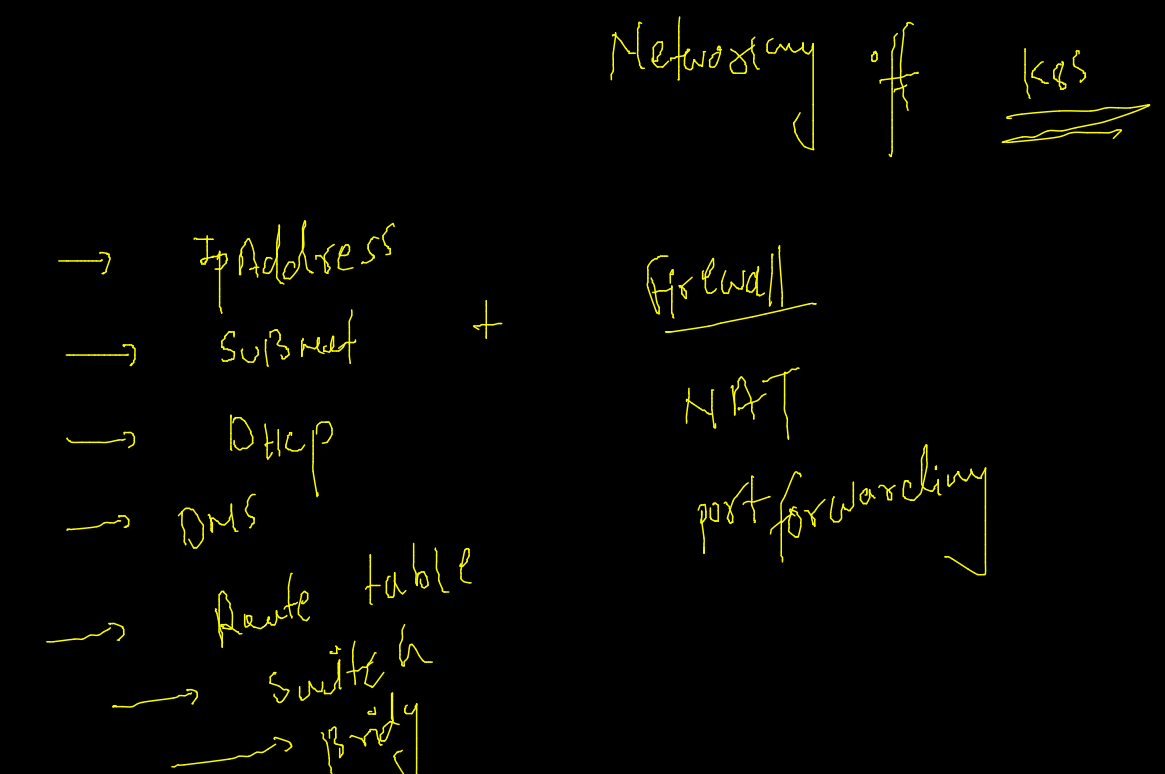 Networking if K8S
→ Ip Address
→ SuBnet +
→ DHCP
→ DNS
→ Route table
→ Switch
→ Bridg
Firewall
NAT
port forwarding